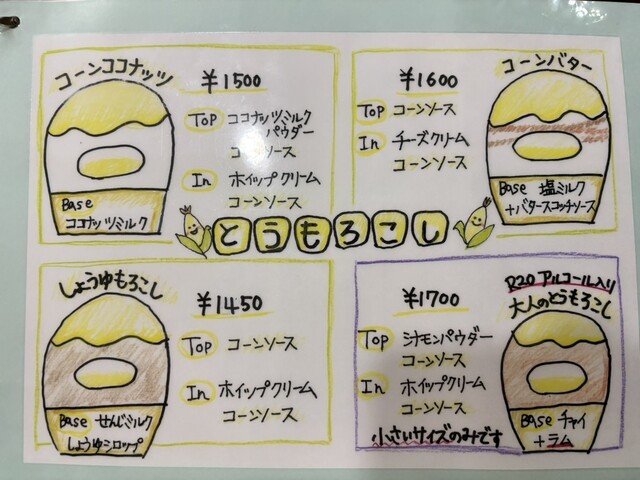 コーンココナッツ
¥1500
Top ココナッツミルク
パウダー
コーンソース
In ホイップクリーム
コーンソース
Base
ココナッツミルク
コーンバター
¥1600
Top コーンソース
In チーズクリーム
コーンソース
Base 塩ミルク
+バタースコッチソース
とうもろこし
しょうゆもろこし
¥1450
Top コーンソース
In ホイップクリーム
コーンソース
Base せんじミルク
しょうゆシロップ
R20 アルコール入り
大人のとうもろこし
¥1700
Top シナモンパウダー
コーンソース
In ホイップクリーム
コーンソース
小さいサイズのみです
Base チャイ
+ラム